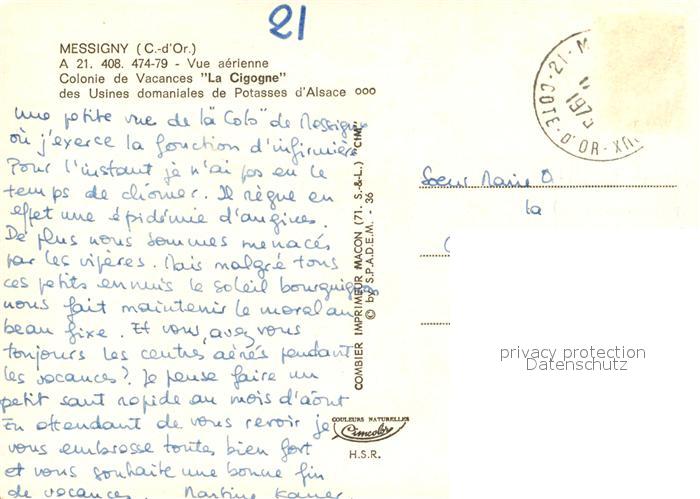 21
MESSIGNY (C.-d'Or.)
A 21. 408. 474-79 - Vue aérienne
Colonie de Vacances "La Cigogne"
des Usines domaniales de Potasses d'Alsace ooo
une petite vue de la "Colo" de Messigny
où j'exerce la fonction d'infirmière
Pour l'instant je n'ai pas eu le
temps de chômer. Il règne en
effet une épidémie d'angines.
De plus nous sommes menacés
par les vipères. Mais malgré tous
ces petits ennuis le soleil bourguignon
nous fait maintenir le moral au
beau fixe. Et vous, avez vous
toujours les centres aérés pendant
les vacances? Je pense faire un
petit saut rapide au mois d'août
En attendant de vous revoir je
vous embrasse toutes bien fort
et vous souhaite une bonne fin
de vacances. Martine
COMBIER IMPRIMEUR MACON (71. S.-&-L.) "CIM"
© by S.P.A.D.E.M. - 36
COULEURS NATURELLES
Cimcolor
H.S.R.
21 - M
COTE-D'OR
Soeur Marie O
la
privacy protection
Datenschutz